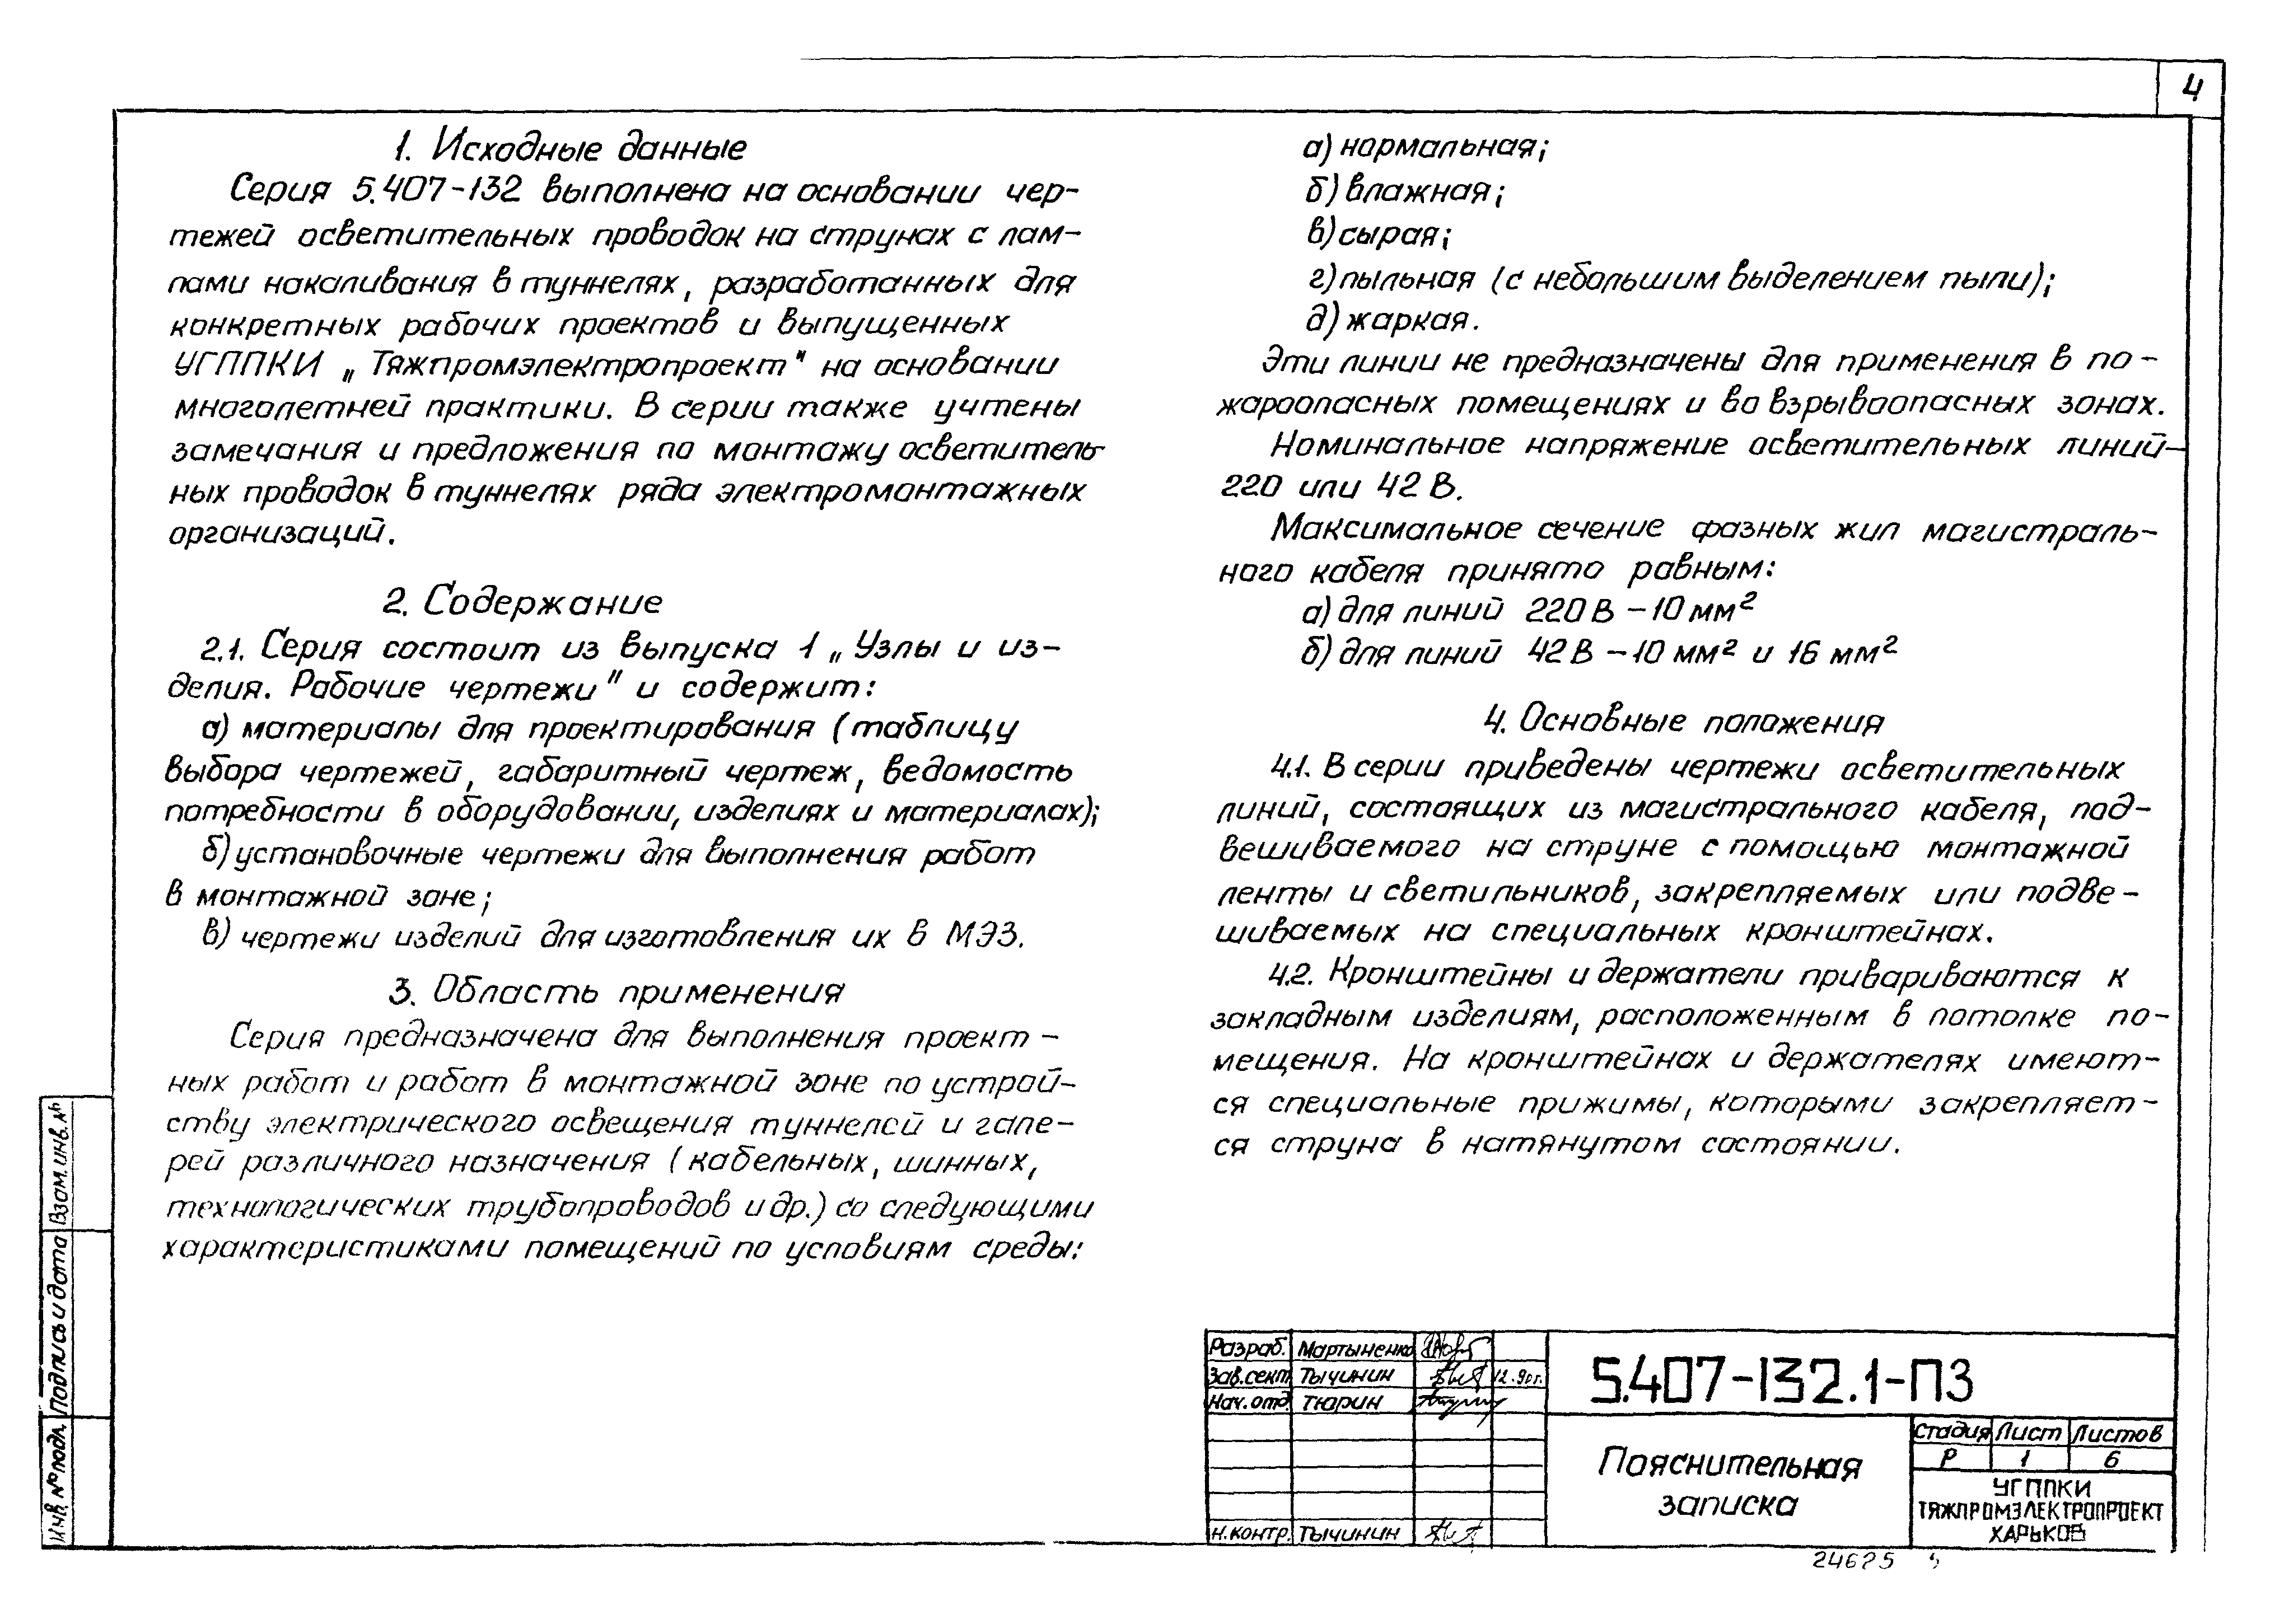 4
1. Исходные данные
Серия 5.407-132 выполнена на основании чер-
тежей осветительных проводок на струнах с лам-
пами накаливания в туннелях, разработанных для
конкретных рабочих проектов и выпущенных
УГППКИ „Тяжпромэлектропроект" на основании
многолетней практики. В серии также учтены
замечания и предложения по монтажу осветитель-
ных проводок в туннелях ряда электромонтажных
организаций.
2. Содержание
2.1. Серия состоит из выпуска 1 „Узлы и из-
делия. Рабочие чертежи" и содержит:
а) материалы для проектирования (таблицу
выбора чертежей, габаритный чертеж, ведомость
потребности в оборудовании, изделиях и материалах);
б) установочные чертежи для выполнения работ
в монтажной зоне;
в) чертежи изделий для изготовления их в МЭЗ.
3. Область применения
Серия предназначена для выполнения проект-
ных работ и работ в монтажной зоне по устрой-
ству электрического освещения туннелей и гале-
рей различного назначения (кабельных, шинных,
технологических трубопроводов и др.) со следующими
характеристиками помещений по условиям среды:
а) нормальная;
б) влажная;
в) сырая;
г) пыльная (с небольшим выделением пыли);
д) жаркая.
Эти линии не предназначены для применения в по-
жароопасных помещениях и во взрывоопасных зонах.
Номинальное напряжение осветительных линий-
220 или 42 В.
Максимальное сечение фазных жил магистраль-
ного кабеля принято равным:
а) для линий 220 В - 10 мм²
б) для линий 42 В - 10 мм² и 16 мм²
4. Основные положения
4.1. В серии приведены чертежи осветительных
линий, состоящих из магистрального кабеля, под-
вешиваемого на струне с помощью монтажной
ленты и светильников, закрепляемых или подве-
шиваемых на специальных кронштейнах.
4.2. Кронштейны и держатели привариваются к
закладным изделиям, расположенным в потолке по-
мещения. На кронштейнах и держателях имеют-
ся специальные прижимы, которыми закрепляет-
ся струна в натянутом состоянии.
Взам. инв. №
Подпись и дата
Инв. № подл.
Разраб. Мартыненко
Зав. сект. Тычинин 12.90г.
Нач. отд. Тюрин
Н. контр. Тычинин
5.407-132.1-ПЗ
Пояснительная
записка
Стадия Лист Листов
Р 1 6
УГППКИ
ТЯЖПРОМЭЛЕКТРОПРОЕКТ
ХАРЬКОВ
24625